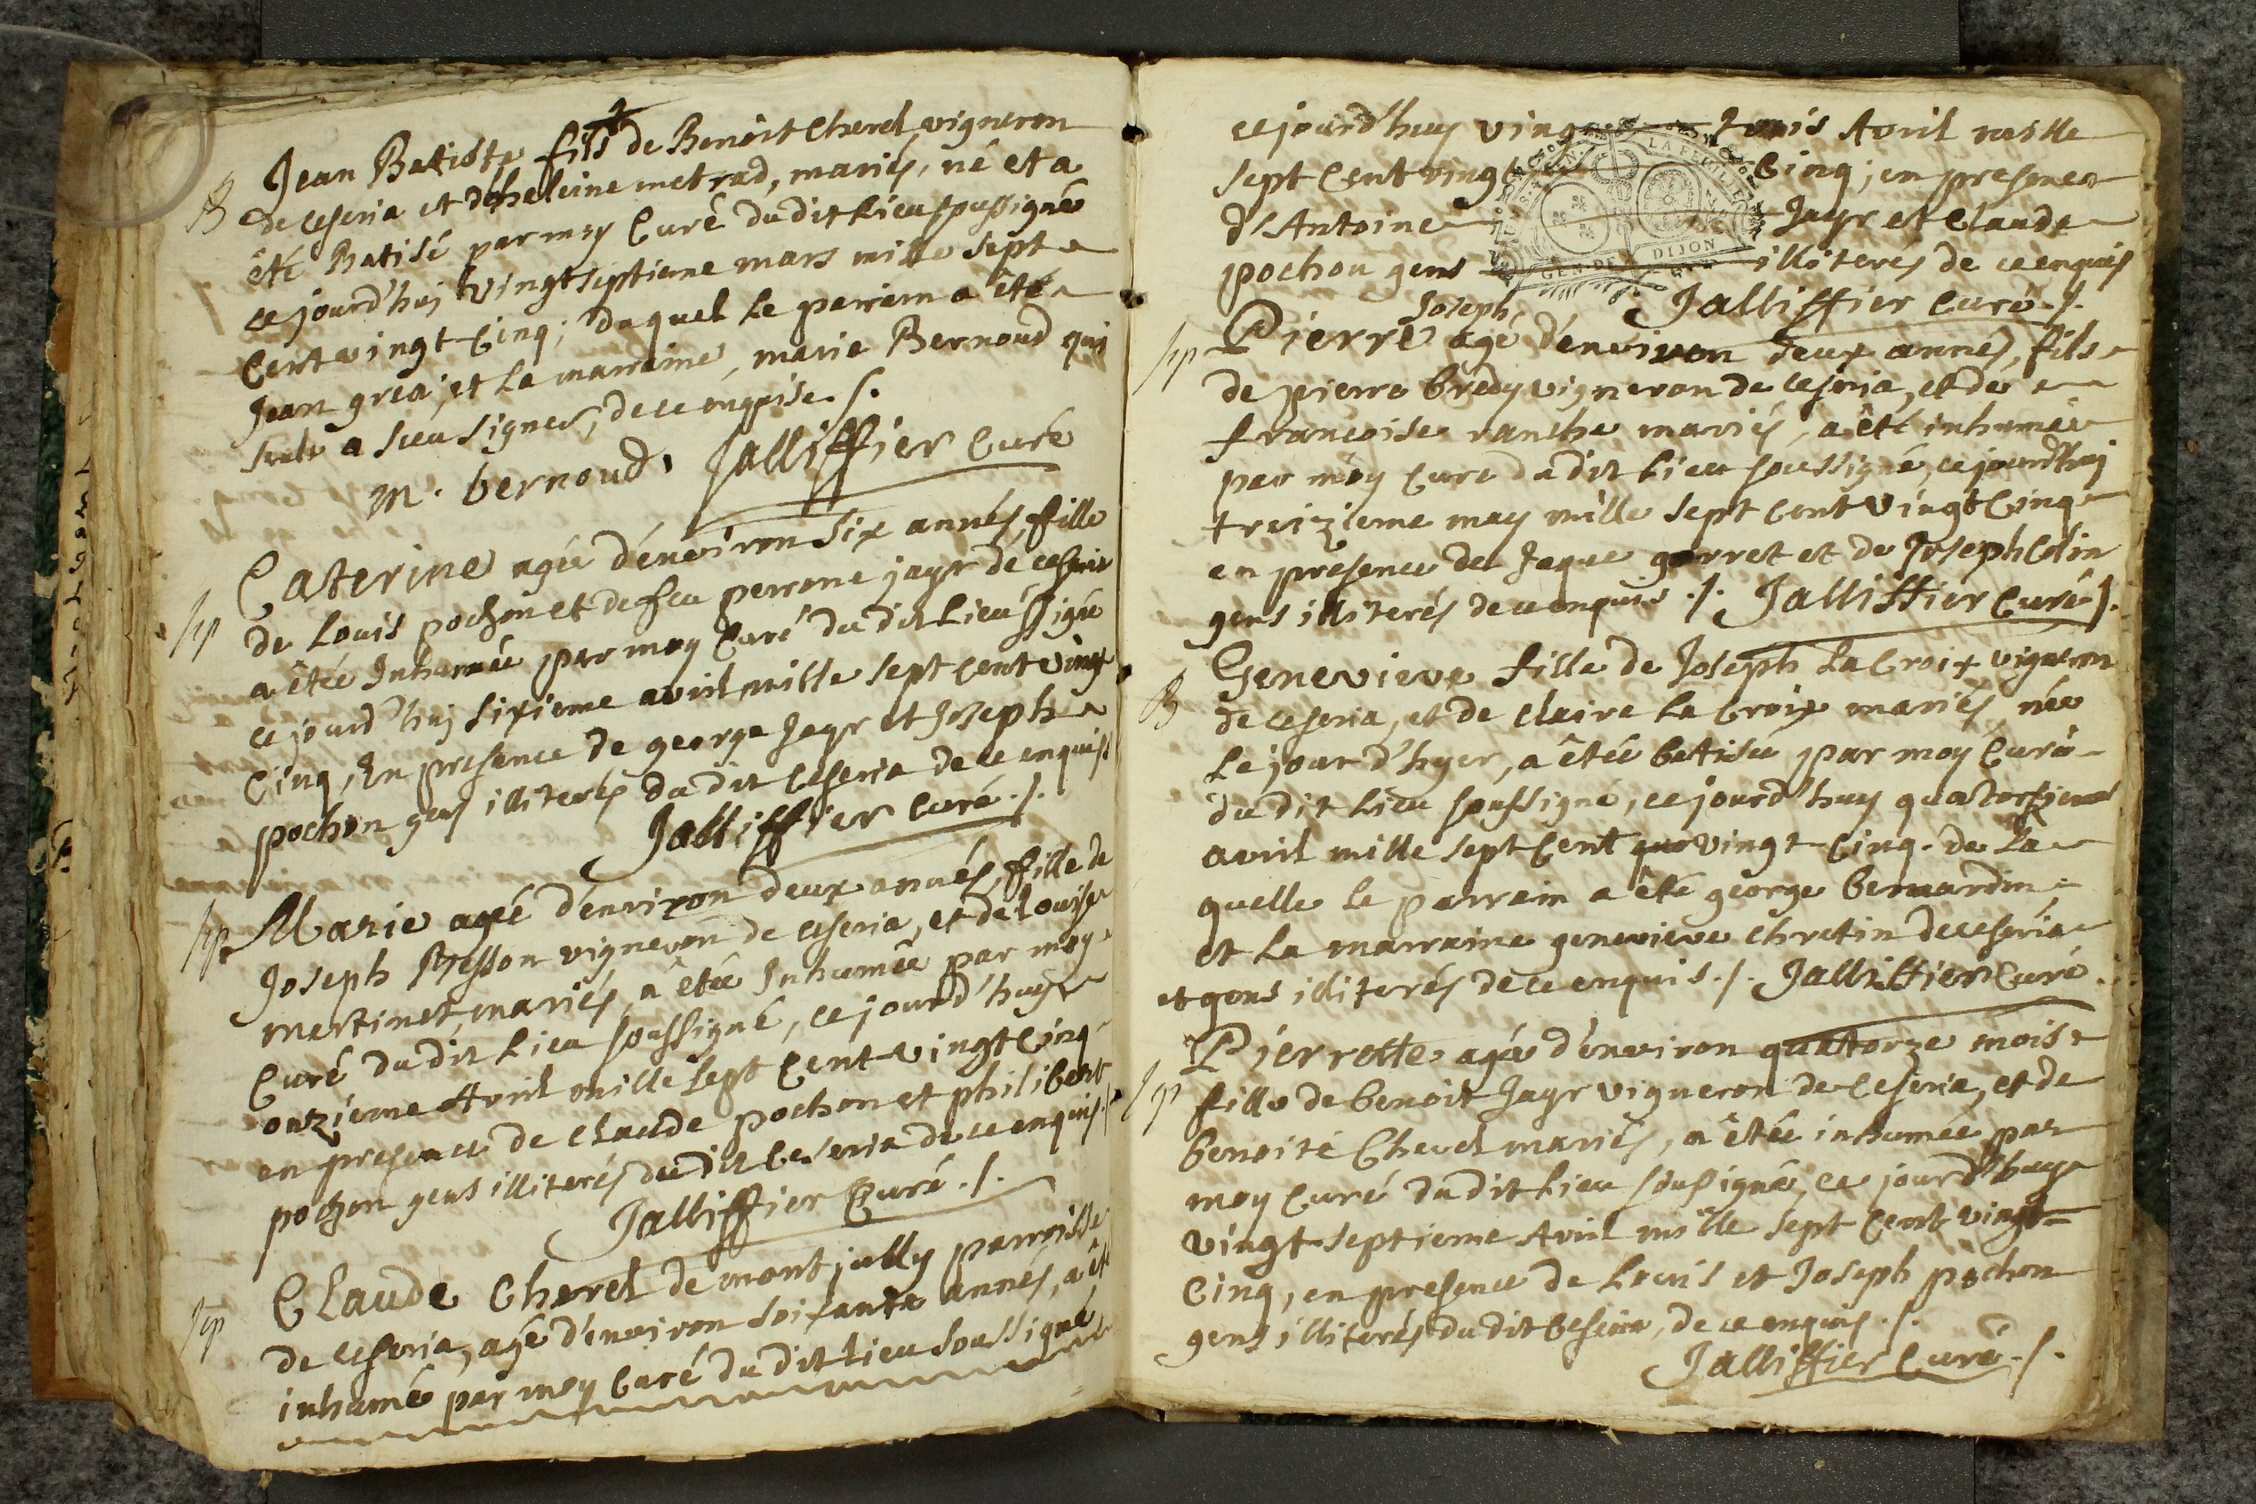 B
Jean Batiste fils de Benoit Cherel, vigneron
de Ceseria et d'heleine metrad, mariés, né et a
été Batisé par moy Curé du dit Lieu soussigné
ce jourd'huj vingt septieme mars mille sept
Cent vingt-Cinq; duquel le parrain a êté
Jean grea; et La marraine, marie Bernoud qui
seule a sceu signer, de ce enquise ./.
m. bernoud. Jalliffier Curé
sp
Caterine agée d'environ six annés, fille
de Louis pochon et de feu perrone jayr de Ceseria
a êtée Inhumée par moy Curé du dit Lieu ssigné
ce jourd'huj sixieme avril mille sept Cent vingt
Cinq, En presence de george Jayr et Joseph
pochon gens illiterés du dit Ceseria de ce enquis
Jalliffier Curé ./.
sp
Marie ageé d'environ deux annés, fille de
Joseph Besson vigneron de Ceseria, et de Louise
martinet, mariés, a êtée Inhumée par moy
Curé du dit Lieu soussigné, ce jourd'huy
onzieme Avril mille sept Cent-vingt Cinq
en presence de Claude pochon et philibert
pochon gens illiterés du dit Ceseria de ce enquis
Jalliffier Curé ./.
sp
Claude Cherel de montjully parroisse
de Ceseria, agé d'environ soixante annés, a êté
inhumé par moy Curé du dit Lieu soussigné
ce jourd'huy ving trois Avril mille
sept Cent vingt Cinq; en presence
d'Antoine Jayr et Claude
pochon gens illiterés de ce enquis
GEN. DE DIJON
Jalliffier Curé ./.
sp
Joseph,
Pierre agé d'environ deux annés, fils
de pierre bredy vigneron de Ceseria, et de
francoise ranche mariés, a êté inhumée
par moy Curé du dit Lieu soussigné, ce jourdhuj
treizieme may mille sept Cent vingt Cinq
en presence de Jaque garret et de Joseph Colin
gens illiterés de ce enquis ./. Jalliffier Curé ./.
B
Genevieve fille de Joseph La Croix vigneron
de Ceseria, et de Claire La Croix mariés, née
Le jour d'hyer, a êtée batisée par moy Curé
du dit Lieu soussigné, ce jourd'huy quatorzieme
avril mille sept Cent vingt-Cinq. de La
quelle le parrain a êté george bernardin
et La marraine genevieve Chretin de Ceseria
et gens illiterés de ce enquis ./. Jalliffier Curé.
sp
Pierrette agée d'environ quattorze mois
fille de benoit Jayr vigneron de Ceseria, et de
benoite Cherel mariés, a êtée inhumée par
moy Curé du dit Lieu sousigné, ce jourd'huy
vingt-septieme Avril mille sept Cent vingt-
Cinq, en presence de Louis et Joseph pochon
gens illiterés du dit Ceseria, de ce enquis ./.
Jalliffier Curé ./.